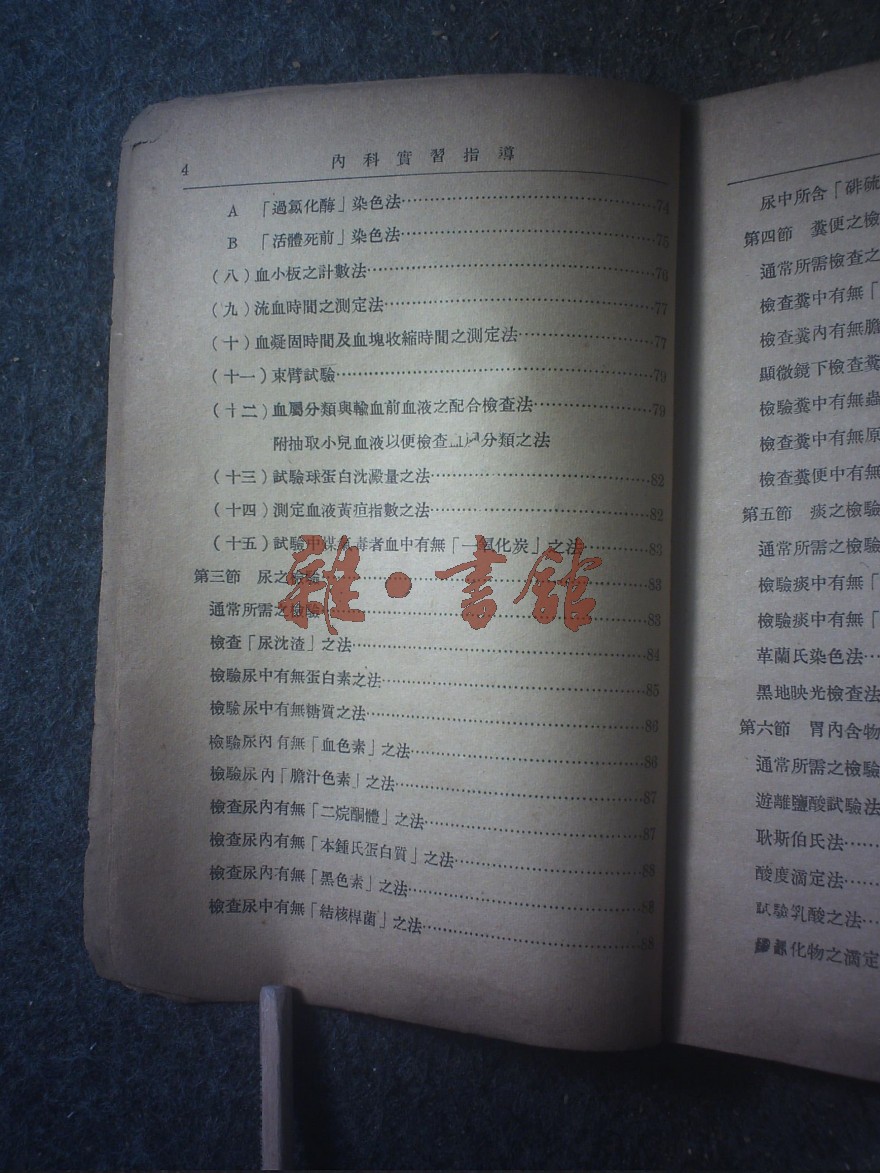 4 內科實習指導
A 「過氯化酶」染色法 74
B 「活體死前」染色法 75
(八)血小板之計數法 76
(九)流血時間之測定法 77
(十)血凝固時間及血塊收縮時間之測定法 77
(十一)束臂試驗 79
(十二)血屬分類與輸血前血液之配合檢查法 79
附抽取小兒血液以便檢查血 分類之法
(十三)試驗球蛋白沈澱量之法 82
(十四)測定血液黃疸指數之法 82
(十五)試驗中煤 毒者血中有無「一氧化炭」之法 83
第三節 尿之檢驗 83
通常所需之檢驗 83
檢查「尿沈渣」之法 84
檢驗尿中有無蛋白素之法 85
檢驗尿中有無糖質之法 86
檢驗尿內有無「血色素」之法 86
檢驗尿內「膽汁色素」之法 87
檢查尿內有無「二烷酮體」之法 87
檢查尿內有無「本鍾氏蛋白質」之法 88
檢查尿內有無「黑色素」之法 88
檢查尿中有無「結核桿菌」之法 88
雜·書館
尿中所含「砒硫
第四節 糞便之檢
通常所需檢查之
檢查糞中有無「
檢查糞內有無膽
顯微鏡下檢查糞
檢驗糞中有無蟲
檢查糞中有無原
檢查糞便中有無
第五節 痰之檢驗
通常所需之檢驗
檢驗痰中有無「
檢驗痰中有無「
革蘭氏染色法
黑地映光檢查法
第六節 胃內含物
通常所需之檢驗
遊離鹽酸試驗法
耿斯伯氏法
酸度滴定法
試驗乳酸之法
化物之滴定